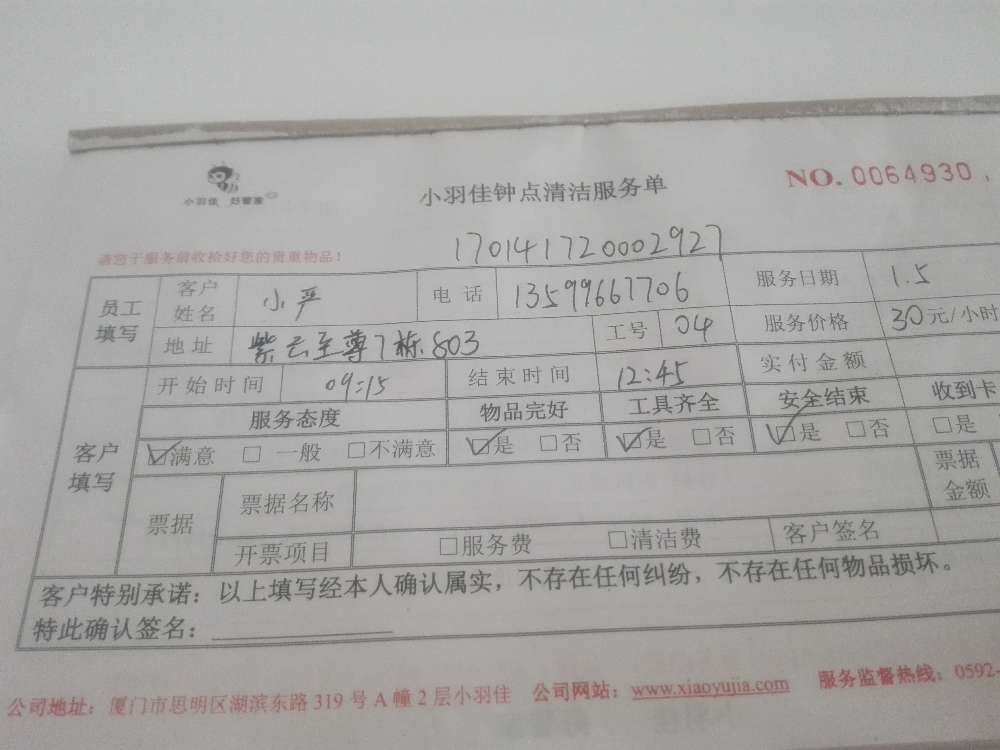 小羽佳 好管家
小羽佳钟点清洁服务单
NO. 0064930
请您于服务前收捡好您的贵重物品!
170141720002927
员工填写 客户姓名 小严 电话 13599667706 服务日期 1.5
地址 紫云至尊7栋803 工号 04 服务价格 30元/小时
客户填写 开始时间 09:15 结束时间 12:45 实付金额
服务态度 物品完好 工具齐全 安全结束 收到卡
☑满意 □一般 □不满意 ☑是 □否 ☑是 □否 ☑是 □否 □是
票据 票据名称 票据金额
开票项目 □服务费 □清洁费 客户签名
客户特别承诺：以上填写经本人确认属实，不存在任何纠纷，不存在任何物品损坏。
特此确认签名：
公司地址：厦门市思明区湖滨东路 319 号 A 幢 2 层小羽佳 公司网站：www.xiaoyujia.com 服务监督热线：0592-